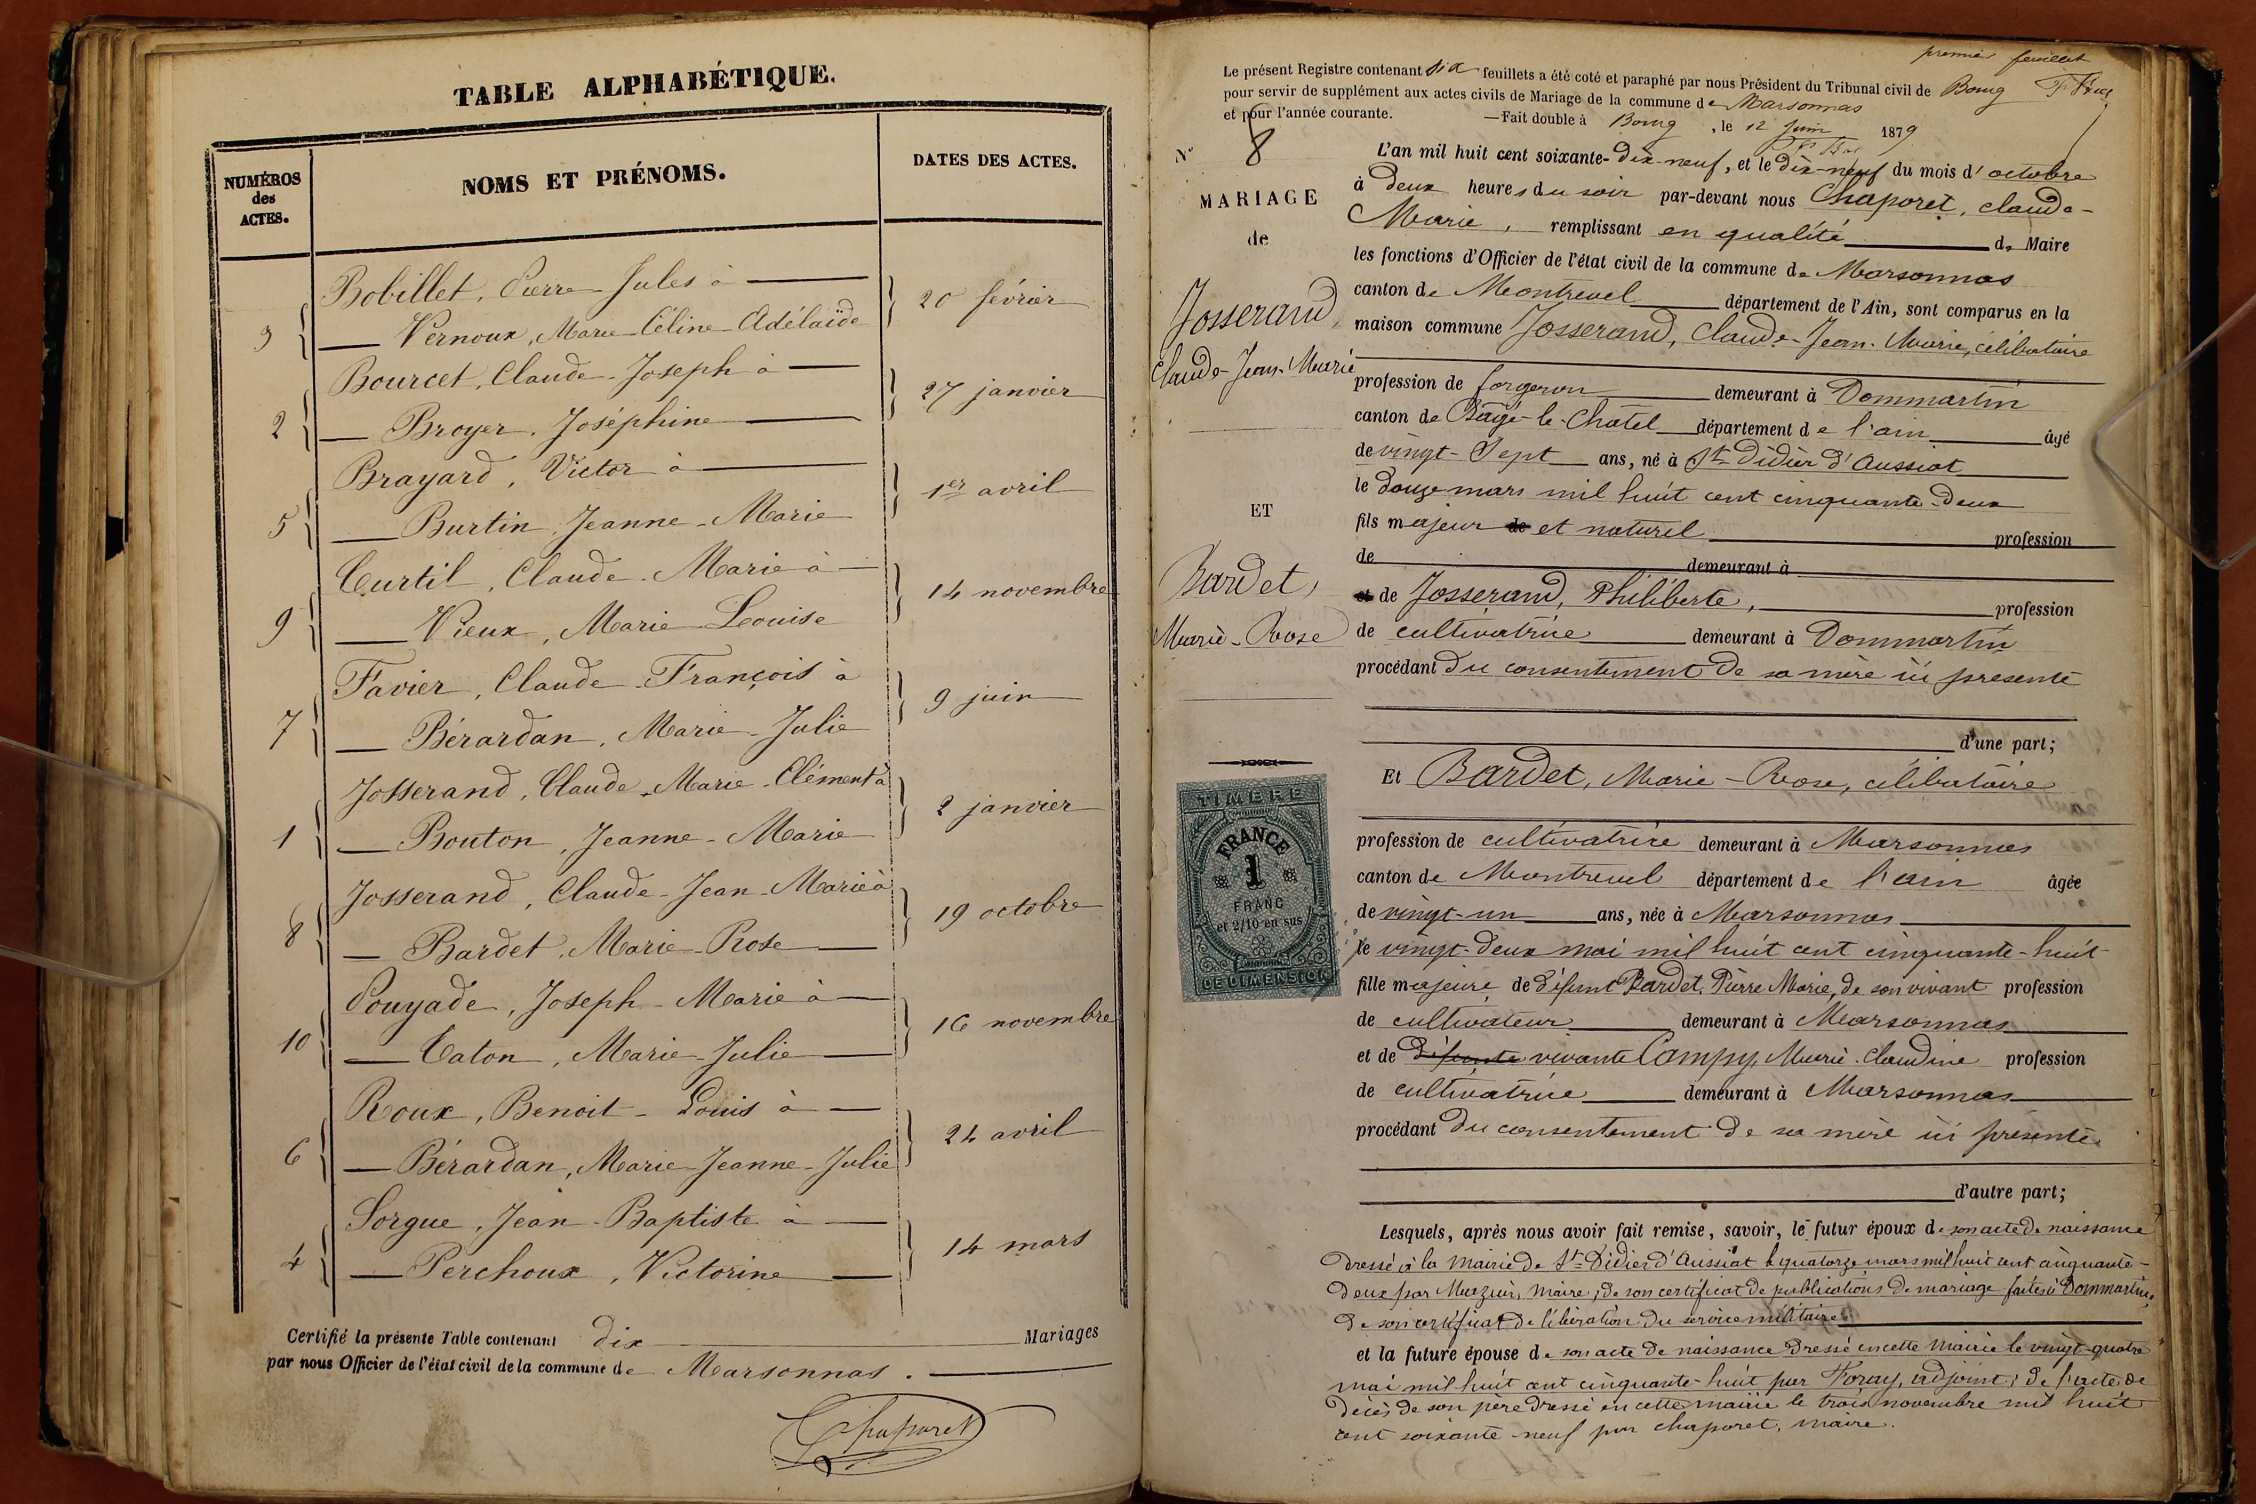 TABLE ALPHABÉTIQUE.
NUMÉROS des ACTES.
NOMS ET PRÉNOMS.
DATES DES ACTES.
Bobillet, Pierre-Jules à
3 — Vernoux, Marie-Céline-Adélaïde
20 février
Bourcet, Claude-Joseph à
2 — Broyer, Joséphine
27 janvier
Brayard, Victor à
5 — Burtin, Jeanne-Marie
1er avril
Curtil, Claude-Marie à
9 — Vieux, Marie-Louise
14 novembre
Favier, Claude-François à
7 — Bérardan, Marie-Julie
9 juin
Josserand, Claude-Marie-Clément à
1 — Bouton, Jeanne-Marie
2 janvier
Josserand, Claude-Jean-Marie à
8 — Bardet, Marie-Rose
19 octobre
Pouyade, Joseph-Marie à
10 — Caton, Marie-Julie
16 novembre
Roux, Benoit-Louis à
6 — Bérardan, Marie-Jeanne-Julie
24 avril
Sorgue, Jean-Baptiste à
4 — Perchoux, Victorine
14 mars
Certifié la présente Table contenant dix Mariages
par nous Officier de l'état civil de la commune de Marsonnas.
Chaporet
premier feuillet
Le présent Registre contenant six feuillets a été coté et paraphé par nous Président du Tribunal civil de Bourg
pour servir de supplément aux actes civils de Mariage de la commune de Marsonnas
et pour l'année courante. —Fait double à Bourg, le 12 Juin 1879
N° 8
MARIAGE
de
Josserand,
Claude-Jean-Marie
ET
Bardet,
Marie-Rose
TIMBRE
FRANCE
1
FRANC
et 2/10 en sus
DE DIMENSION
L'an mil huit cent soixante-dix-neuf, et le dix-neuf du mois d'octobre
à deux heures du soir par-devant nous Chaporet, Claude-
Marie, remplissant en qualité de Maire
les fonctions d'Officier de l'état civil de la commune de Marsonnas
canton de Montrevel département de l'Ain, sont comparus en la
maison commune Josserand, Claude-Jean-Marie, célibataire
profession de forgeron demeurant à Dommartin
canton de Bâgé-le-Chatel département de l'ain âgé
de vingt-Sept ans, né à St Didier d'Aussiat
le douze mars mil huit cent cinquante-deux
fils majeur de et naturel profession
de demeurant à
et de Josserand, Philiberte, profession
de cultivatrice demeurant à Dommartin
procédant du consentement de sa mère ici présente
d'une part;
Et Bardet, Marie-Rose, célibataire
profession de cultivatrice demeurant à Marsonnas
canton de Montrevel département de l'ain âgée
de vingt-un ans, née à Marsonnas
le vingt-deux mai mil huit cent cinquante-huit
fille majeure de défunt Bardet, Pierre Marie, de son vivant profession
de cultivateur demeurant à Marsonnas
et de défunte vivante Campy, Marie-Claudine profession
de cultivatrice demeurant à Marsonnas
procédant du consentement de sa mère ici présente.
d'autre part;
Lesquels, après nous avoir fait remise, savoir, le futur époux de son acte de naissance
dressé à la Mairie de St Didier d'Aussiat le quatorze mars mil huit cent cinquante-
deux par Mazuir, maire; de son certificat de publications de mariage faites à Dommartin,
de son certificat de libération du service militaire
et la future épouse de son acte de naissance dressé en cette Mairie le vingt-quatre
mai mil huit cent cinquante-huit par Foray, adjoint; de l'acte de
décès de son père dressé en cette mairie le trois novembre mil huit
cent soixante-neuf par chaporet, maire.